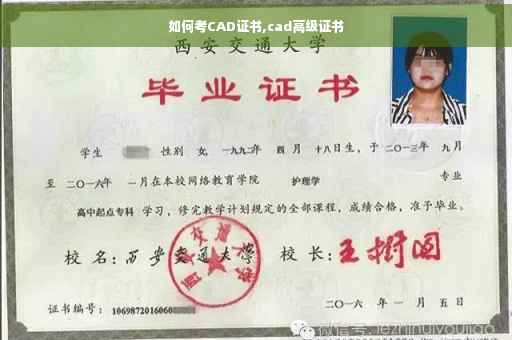 如何考CAD证书,cad高级证书
西安交通大学
毕业证书
学生 性别 女, 一九九二年 四 月 十八日生, 于 二〇一三年 九月
至 二〇一六年 一月在本校网络教育学院 护理学 专业
高中起点专科 学习, 修完教学计划规定的全部课程, 成绩合格, 准予毕业。
校 名: 西安交通大学 校 长: 王树国
西安交通大学
证书编号: 1069872016060
二〇一六 年 一 月 五 日
微信号: jiezhihuiyoujiao